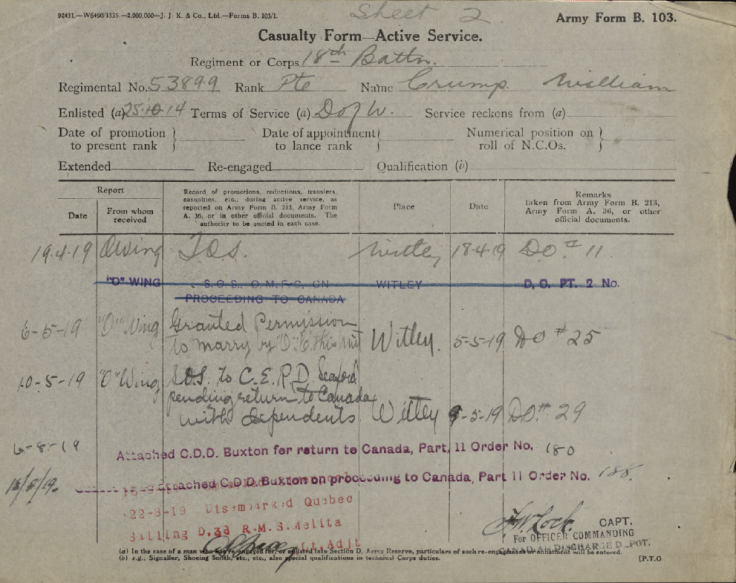 Sheet 2
Army Form B. 103.
Casualty Form—Active Service.
Regiment or Corps 18th Battn.
Regimental No. 53899 Rank Pte Name Crump William
Enlisted (a) 25-10-14 Terms of Service (a) D of W. Service reckons from (a)
Date of promotion to present rank } Date of appointment to lance rank } Numerical position on roll of N.C.Os. }
Extended Re-engaged Qualification (b)
Report
Date
From whom received
Record of promotions, reductions, transfers, casualties, etc., during active service, as reported on Army Form B. 213, Army Form A. 36, or in other official documents. The authority to be quoted in each case.
Place
Date
Remarks
taken from Army Form B. 213, Army Form A. 36, or other official documents.
19.4.19 O Wing TOS. Witley 18-4-19 DO # 11
"O" WING S.O.S. O.M.F.C. ON WITLEY D.O. PT. 2 No.
PROCEEDING TO CANADA
6-5-19 "O" Wing Granted Permission
to marry by O.C. Witley. 5-5-19 DO # 25
10-5-19 "O" Wing S.O.S. to C.E.R.D. Seaford
pending return to Canada
with dependents Witley 9-5-19 DO # 29
6-8-19 Attached C.D.D. Buxton for return to Canada, Part, 11 Order No. 180
Attached C.D.D. Buxton on proceeding to Canada, Part 11 Order No. 188.
22-8-19 Disembarked Quebec
Sailing D.33 R.M.S. Melita
CAPT.
For OFFICER COMMANDING
CANADIAN DISCHARGE DEPOT.
(a) In the case of a man who has re-engaged for, or enlisted into Section D. Army Reserve, particulars of such re-engagement or enlistment will be entered.
(b) e.g., Signaller, Shoeing Smith, etc., etc., also special qualifications in technical Corps duties.
[P.T.O